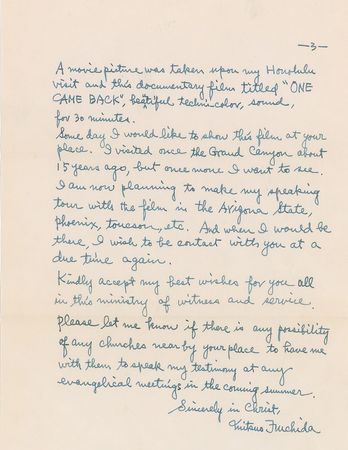 —3—
A movie picture was taken upon my Honolulu
visit and this documentary film titled "ONE
CAME BACK", beautiful techni-color, sound,
for 30 minutes.
Some day I would like to show this film at your
place. I visited once the Grand Canyon about
15 years ago, but once more I want to see.
I am now planning to make my speaking
tour with the film in the Arizona State,
phoenix, toucson, etc. And when I would be
there, I wish to be contact with you at a
due time again.
Kindly accept my best wishes for you all
in this ministry of witness and service.
Please let me know if there is any possibility
of any churches near by your place to have me
with them to speak my testimony at any
evangelical meetings in the coming summer.
Sincerely in Christ,
Mitsuo Fuchida